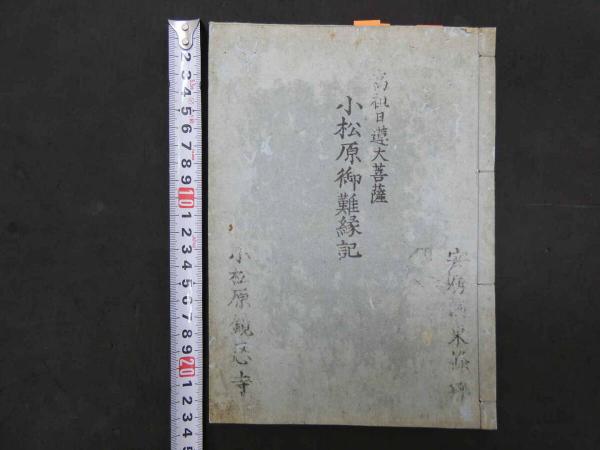 高祖日蓮大菩薩
小松原御難縁記
小松原鏡忍寺
2 3 4 5 6 7 8 9 10 1 2 3 4 5 6 7 8 9 20 1 2 3 4 5